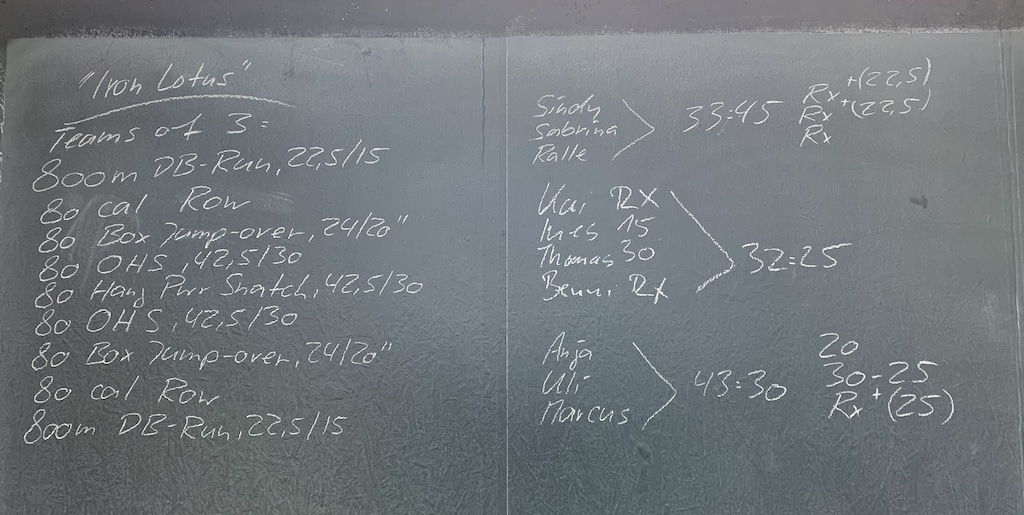 "Iron Lotus"
Teams of 3:
800m DB-Run, 22,5/15
80 cal Row
80 Box Jump-over, 24/20"
80 OHS, 42,5/30
80 Hang Pwr Snatch, 42,5/30
80 OHS, 42,5/30
80 Box Jump-over, 24/20"
80 cal Row
800m DB-Run, 22,5/15
Sindy Rx +(22,5)
Sabrina 33:45 Rx +(22,5)
Ralle Rx
Kai RX
Ines 15
Thomas 30 32:25
Benni RX
Anja 20
Uli 43:30 30-25
Marcus Rx +(25)